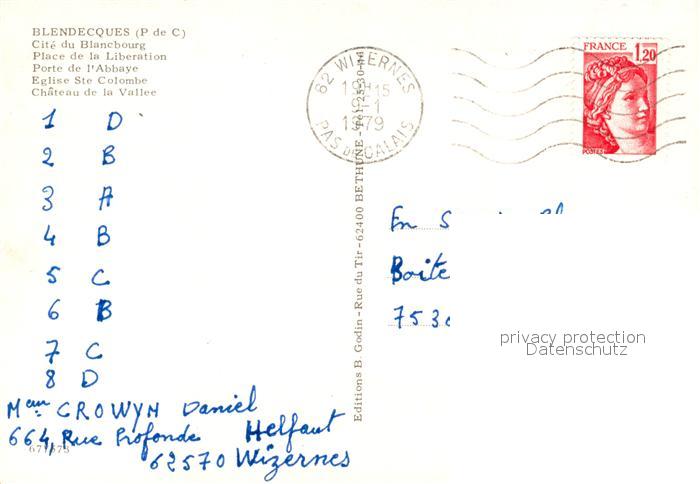 BLENDECQUES (P de C)
Cité du Blancbourg
Place de la Liberation
Porte de l'Abbaye
Eglise Ste Colombe
Château de la Vallee
1 D
2 B
3 A
4 B
5 C
6 B
7 C
8 D
CROWYN Daniel
664, Rue Profonde Helfaut
62570 Wizernes
Editions B. Godin - Rue du Tir - 62400 BETHUNE -
62 WIZERNES
1979
PAS DE CALAIS
FRANCE
1,20
POSTES
En
Boite
753
privacy protection
Datenschutz